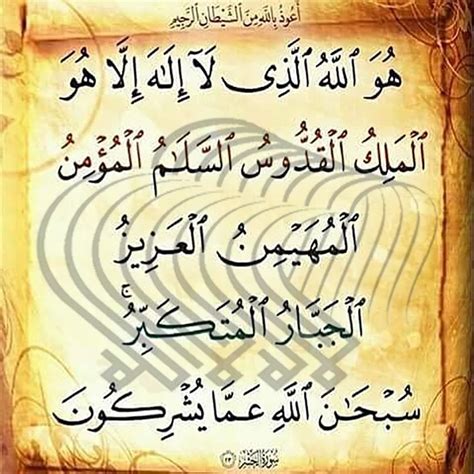 أَعُوذُ بِٱللَّهِ مِنَ ٱلشَّيْطَانِ ٱلرَّجِيمِ
هُوَ ٱللَّهُ ٱلَّذِى لَآ إِلَٰهَ إِلَّا هُوَ
ٱلْمَلِكُ ٱلْقُدُّوسُ ٱلسَّلَٰمُ ٱلْمُؤْمِنُ
ٱلْمُهَيْمِنُ ٱلْعَزِيزُ
ٱلْجَبَّارُ ٱلْمُتَكَبِّرُ ۚ
سُبْحَٰنَ ٱللَّهِ عَمَّا يُشْرِكُونَ
سُورَةُ ٱلْحَشْرِ ٢٣